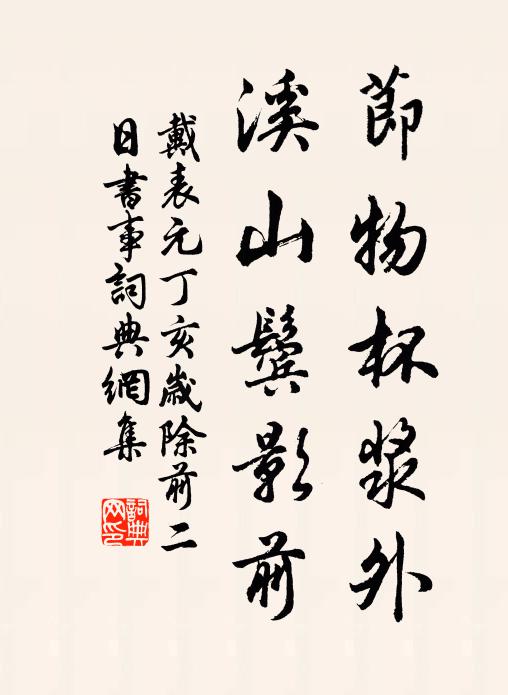 節物杯漿外
溪山鬓影前
戴表元丁亥歲除前二
日書事詞典網集
詞典网印